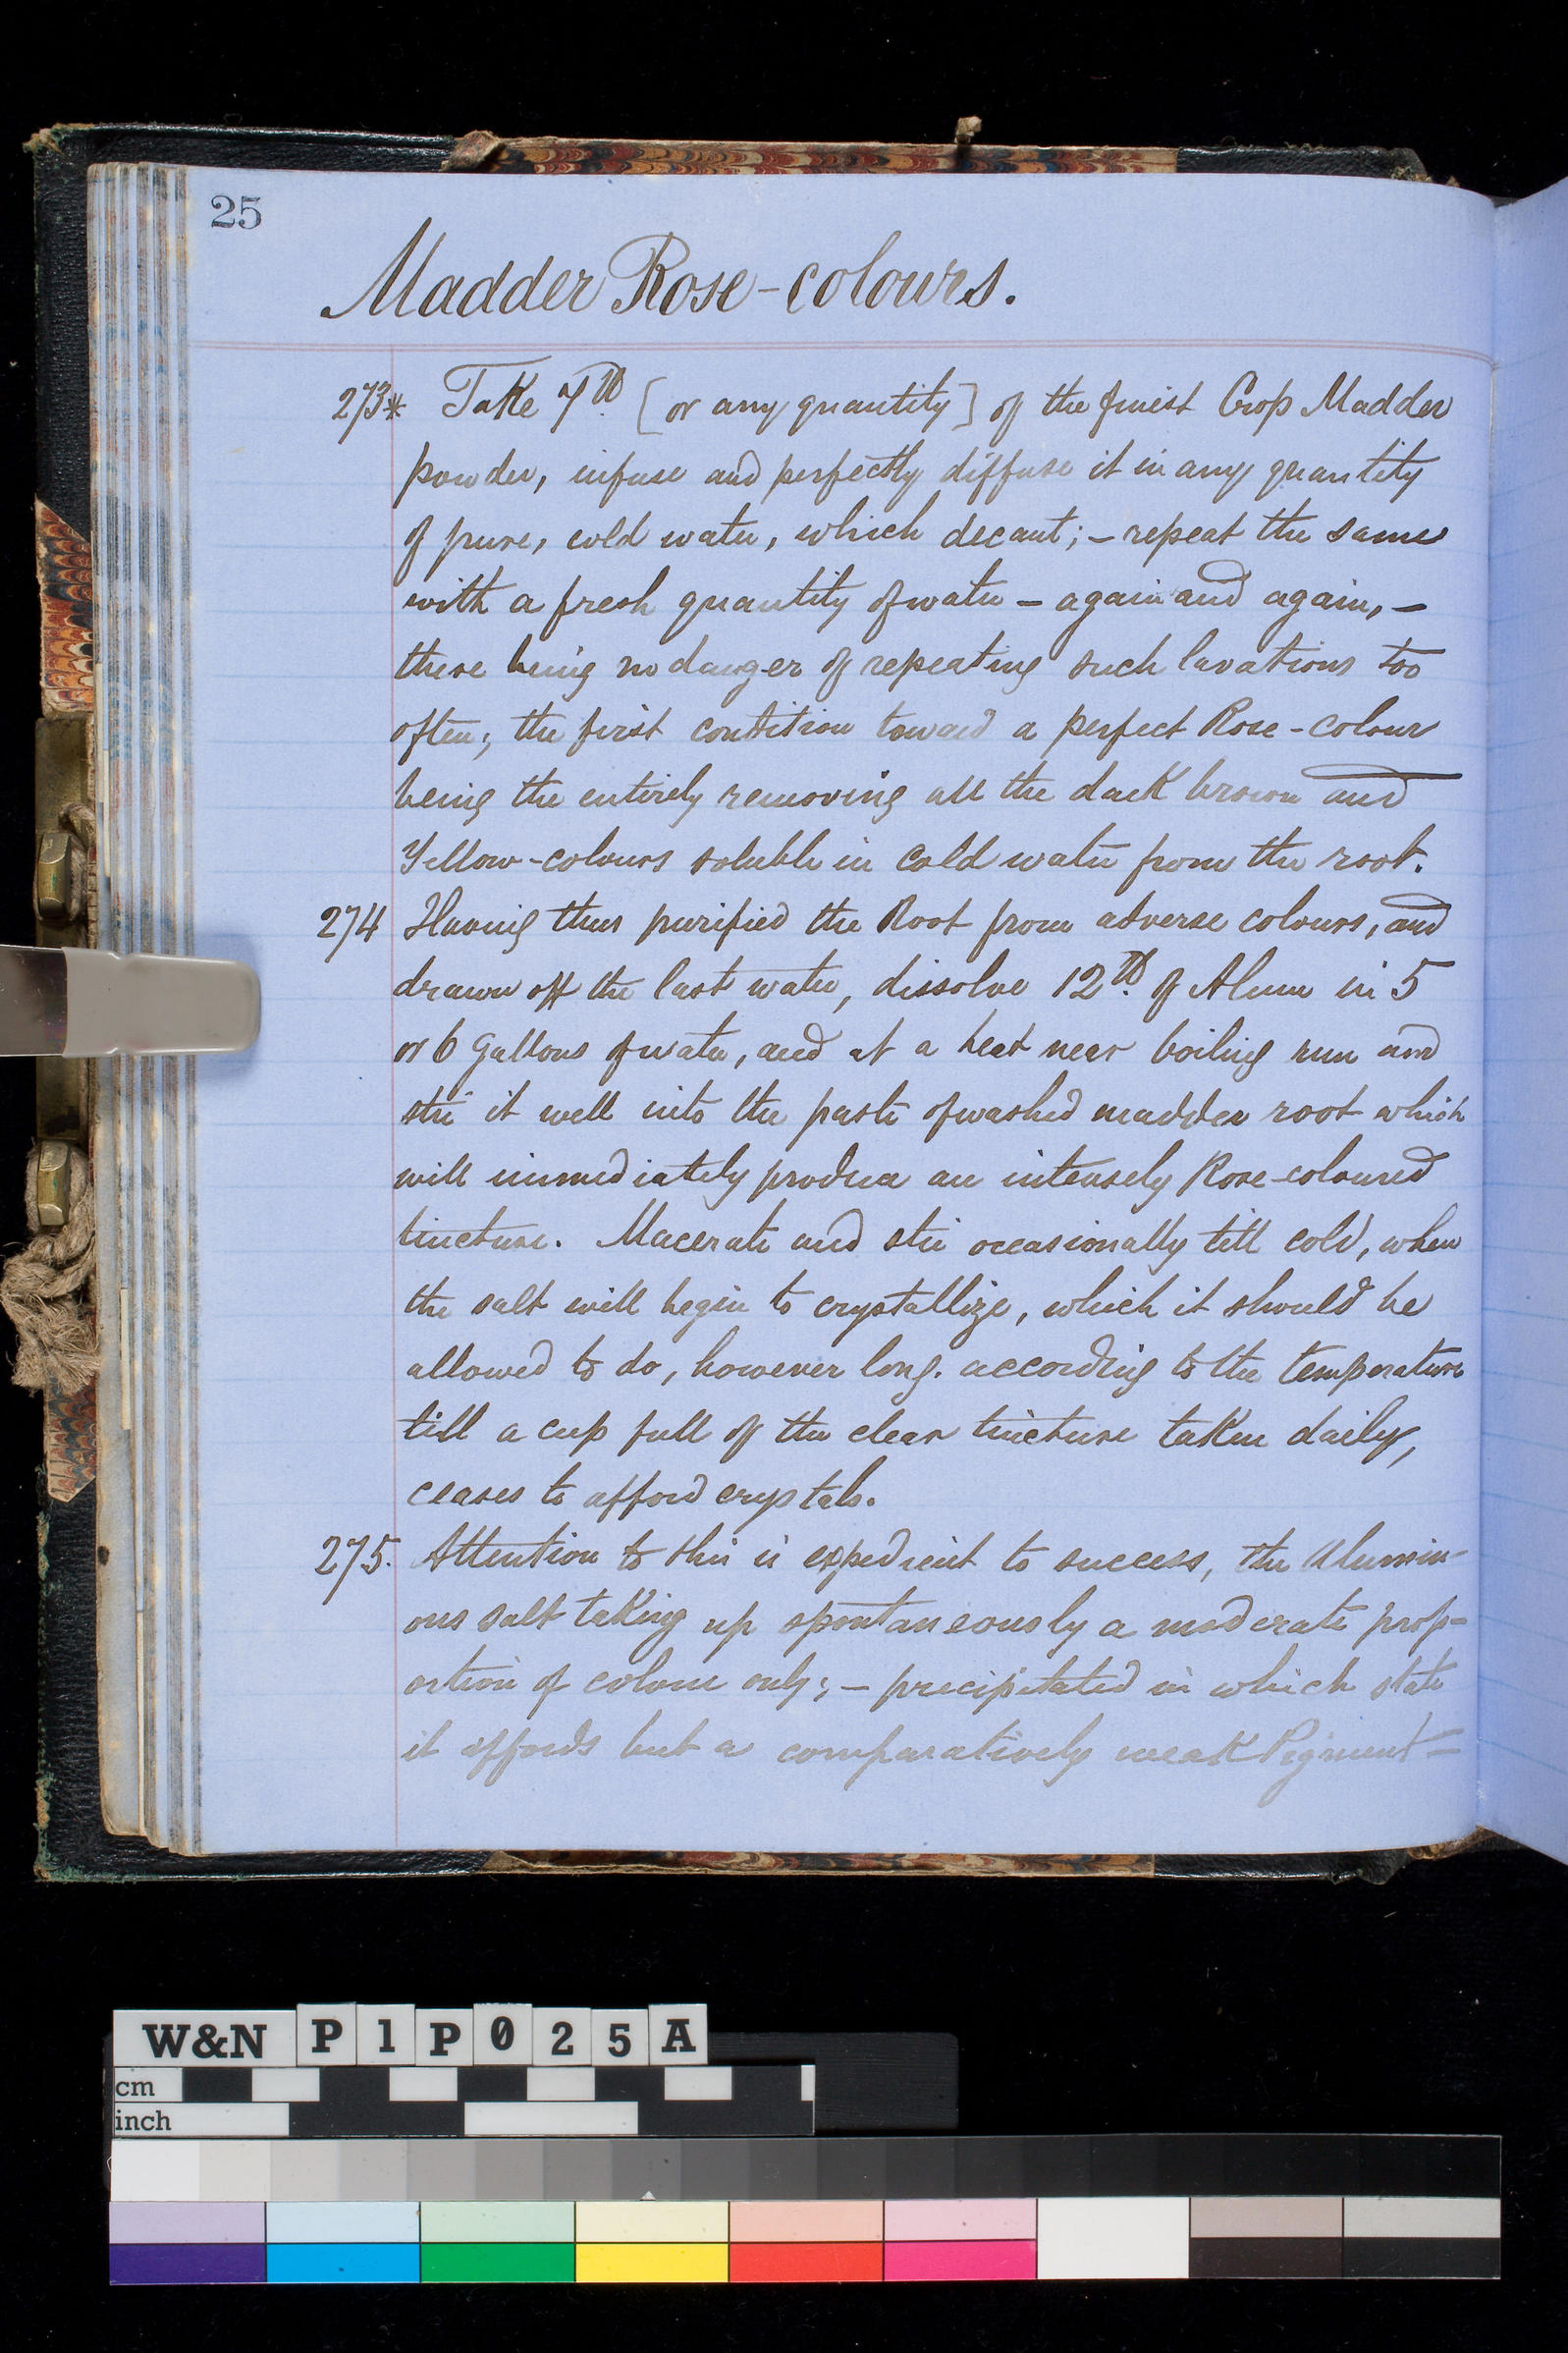 25
Madder Rose-colours.
273* Take 7 lb [or any quantity] of the finest Crop Madder
powder, infuse and perfectly diffuse it in any quantity
of pure, cold water, which decant; – repeat the same
with a fresh quantity of water – again and again, –
there being no danger of repeating such lavations too
often; the first condition toward a perfect Rose-colour
being the entirely removing all the dark brown and
Yellow-colours soluble in cold water from the root.
274 Having thus purified the Root from adverse colours, and
drawn off the last water, dissolve 12 lb. of Alum in 5
or 6 Gallons of water, and at a heat near boiling run and
stir it well into the paste of washed madder root which
will immediately produce an intensely Rose-coloured
tincture. Macerate and stir occasionally till cold, when
the salt will begin to crystallize, which it should be
allowed to do, however long. according to the temperature
till a cup full of the clear tincture taken daily,
ceases to afford crystals.
275. Attention to this is expedient to success, the Alumin-
ous salt taking up spontaneously a moderate prop-
ortion of colour only; – precipitated in which state
it affords but a comparatively weak Pigment –
W&N P1P025A
cm
inch